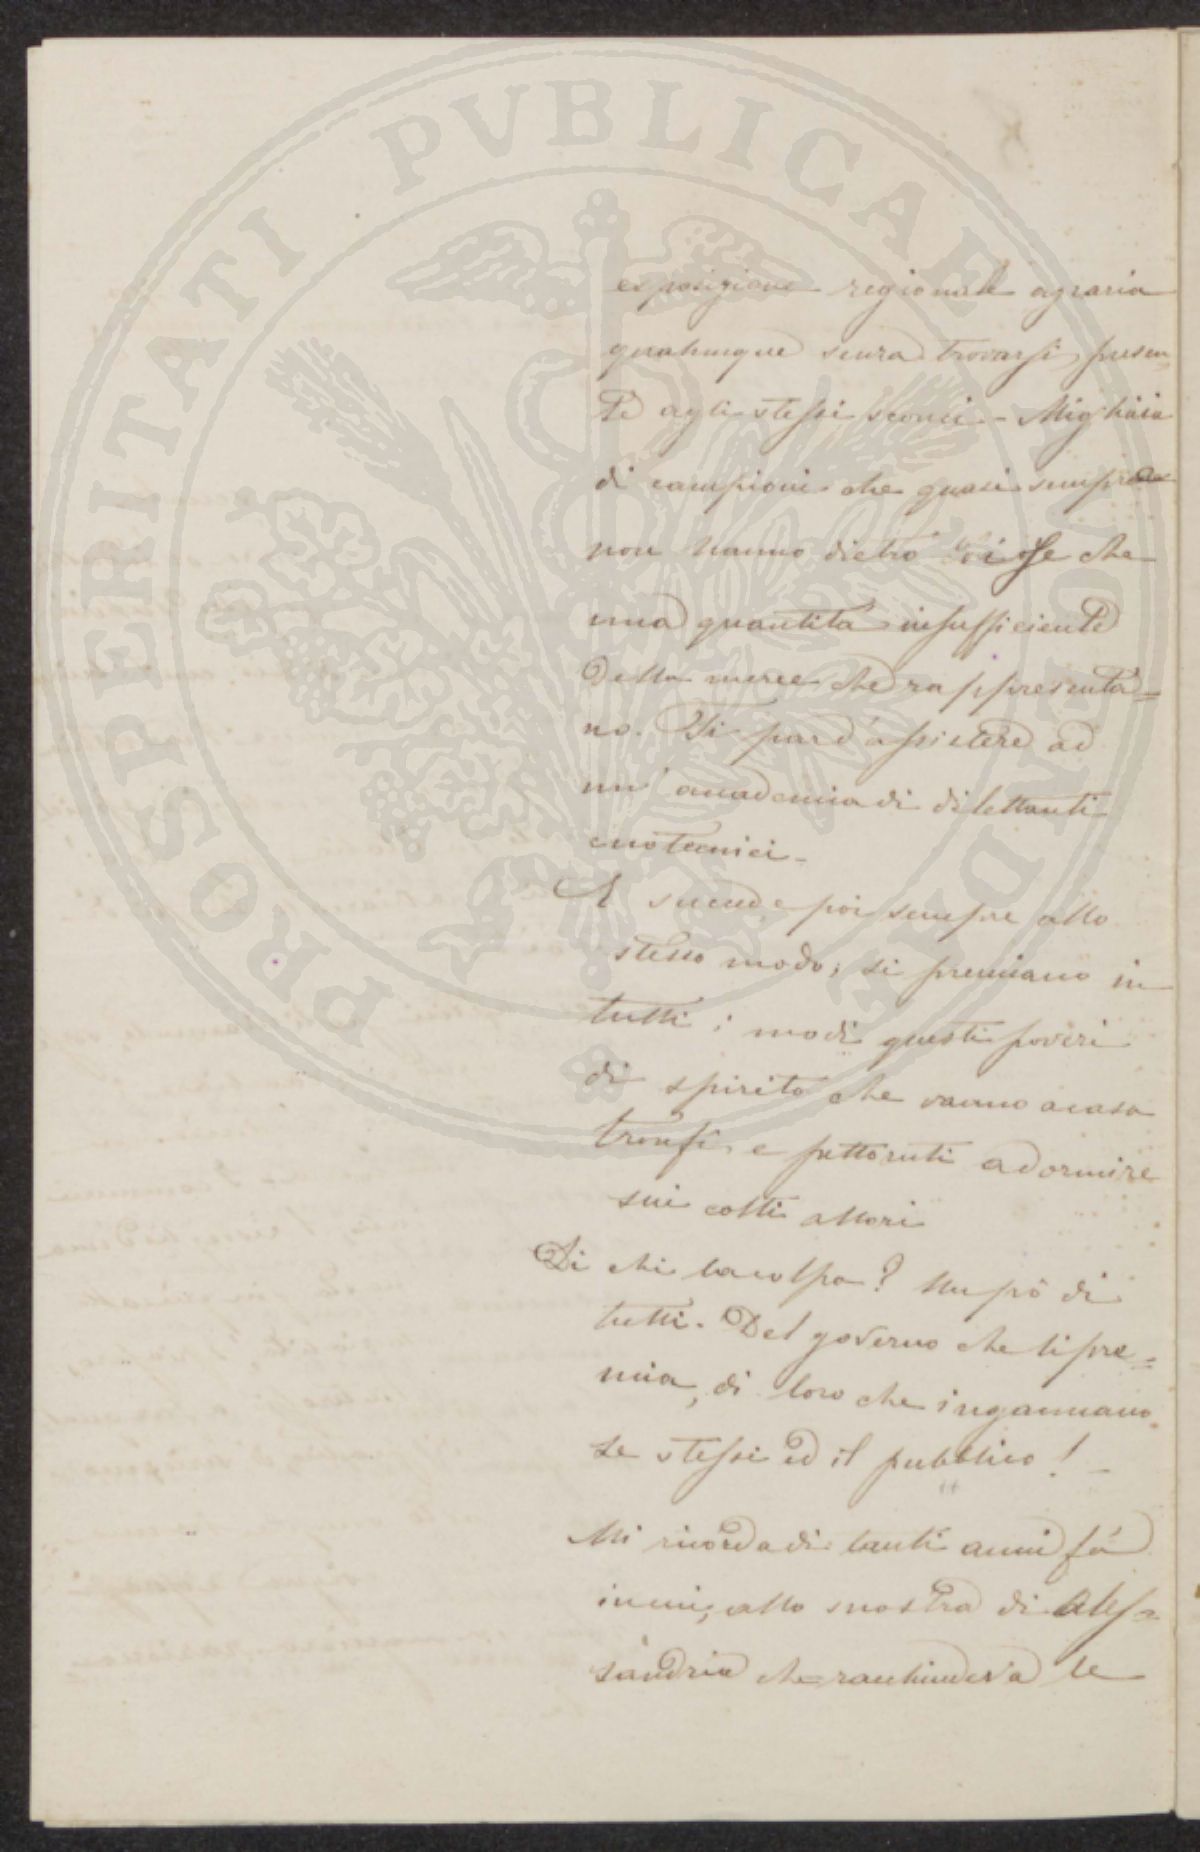 PROSPERITATI PVBLICAE AVGENDAE
esposizione regionale agraria
qualunque senza trovarsi presen
te agli stessi sconci - Migliaia
di campioni che quasi sempre
non hanno dietro di se che
una quantità insufficiente
della merce che rappresenta=
no. Vi par d'assistere ad
un' accademia di dilettanti
enotecnici -
E succede poi sempre allo
stesso modo; si premiano in
tutti i modi questi poveri
di spirito che vanno a casa
tronfi e pettoruti a dormire
sui colti allori
Di chi la colpa? Un pò di
tutti. Del governo che li pre=
mia, di loro che ingannano
se stessi ed il pubblico! -
Mi ricorda di tanti anni fà
in cui, alla mostra di Ales=
sandria che racchiudeva le